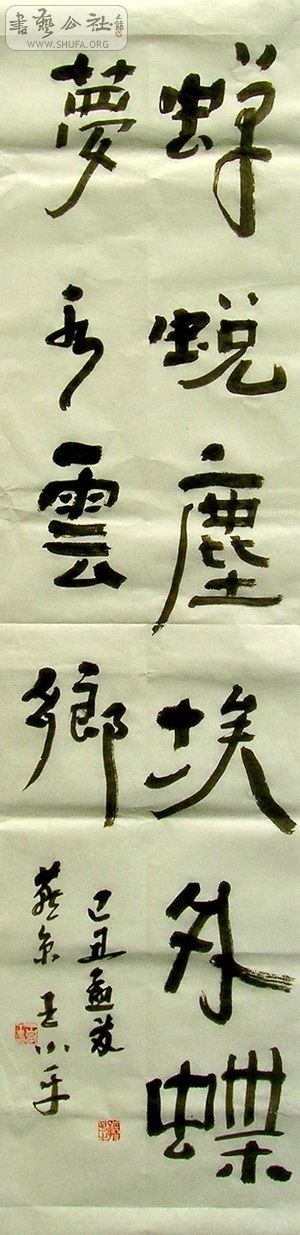 書藝公社
WWW.SHUFA.ORG
蝉蜕塵埃外蝶
夢水雲鄉
己丑孟夏
燕京王小平